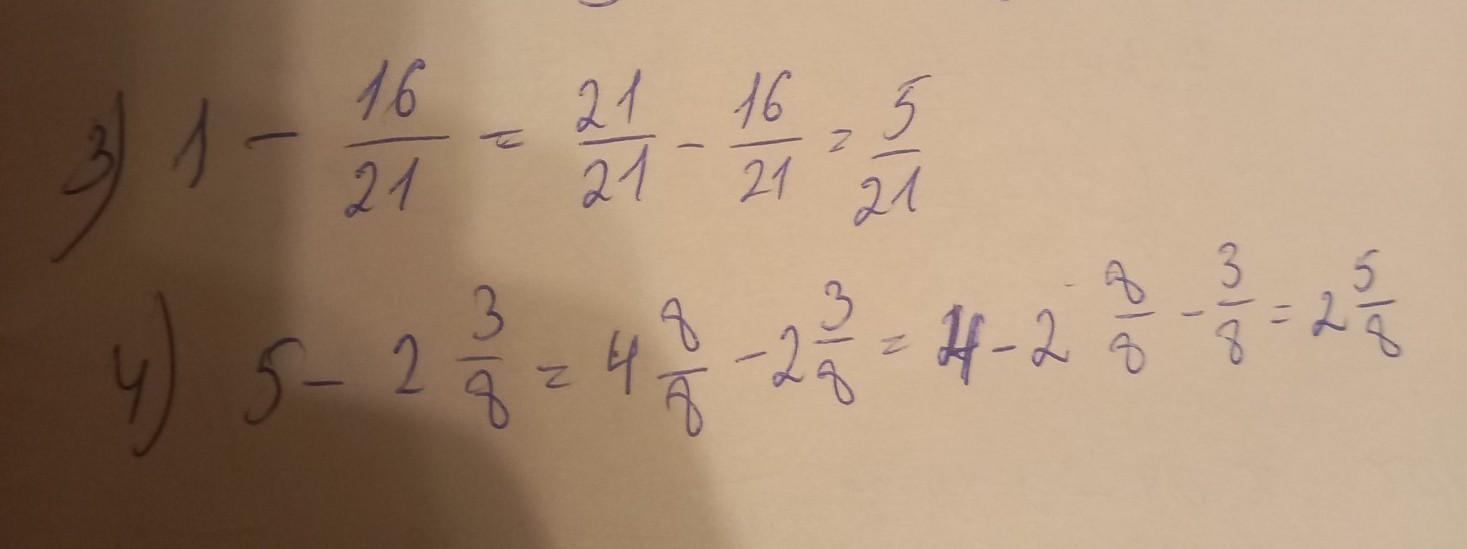 3) 1 - 16/21 = 21/21 - 16/21 = 5/21
4) 5 - 2 3/8 = 4 8/8 - 2 3/8 = 4 - 2 8/8 - 3/8 = 2 5/8